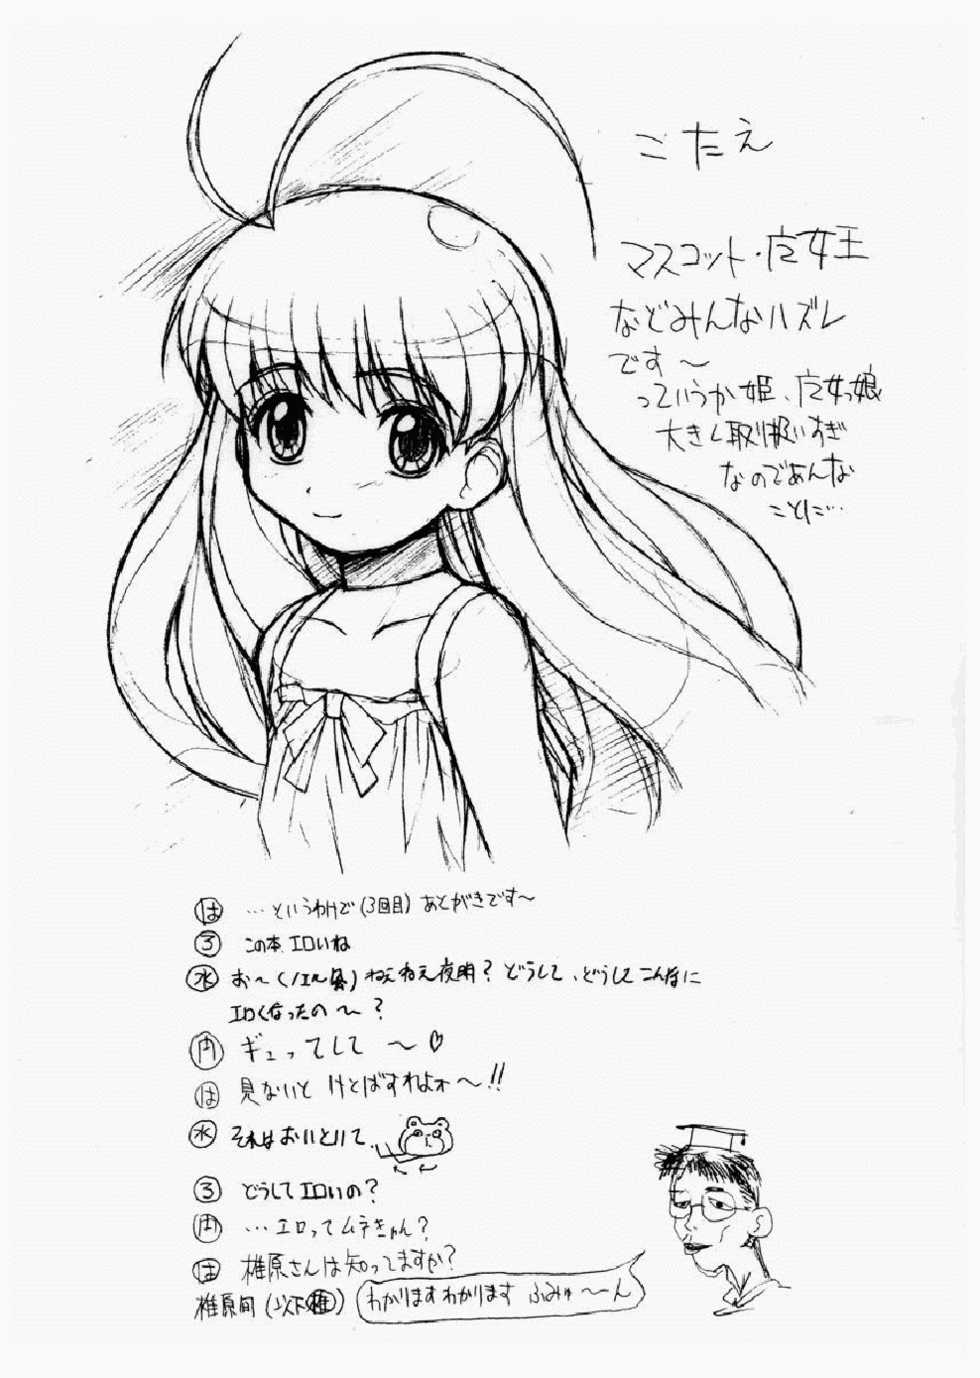 こたえ
マスコット・魔女王
などみんなハズレ
です〜
っていうか姫、魔女っ娘
大きく取り扱いすぎ
なのであんな
ことに…
は …というわけで(3回目)あとがきです〜
ろ この本、エロいね
水 お〜(ノエル風)ねえねえ夜明?どうして、どうしてこんなに
エロくなったの〜?
円 ギュってして〜♡
は 見ないと けとばすれよォ〜!!
水 それはおいといて、
ろ どうしてエロいの?
円 …エロってムネきゅん?
は 椎原さんは知ってますか?
椎原旬(以下椎) わかりますわかります ふみゅ〜〜ん